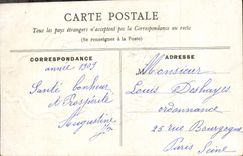 CARTE POSTALE
Tous les pays étrangers n'acceptent pas la Correspondance au recto
(Se renseigner à la Poste)
CORRESPONDANCE
année 1909
Santé bonheur
et Prospérité
Augustine
ADRESSE
Monsieur
Louis Deshayes
ordonnance
25 rue Bourgogne
Paris Seine